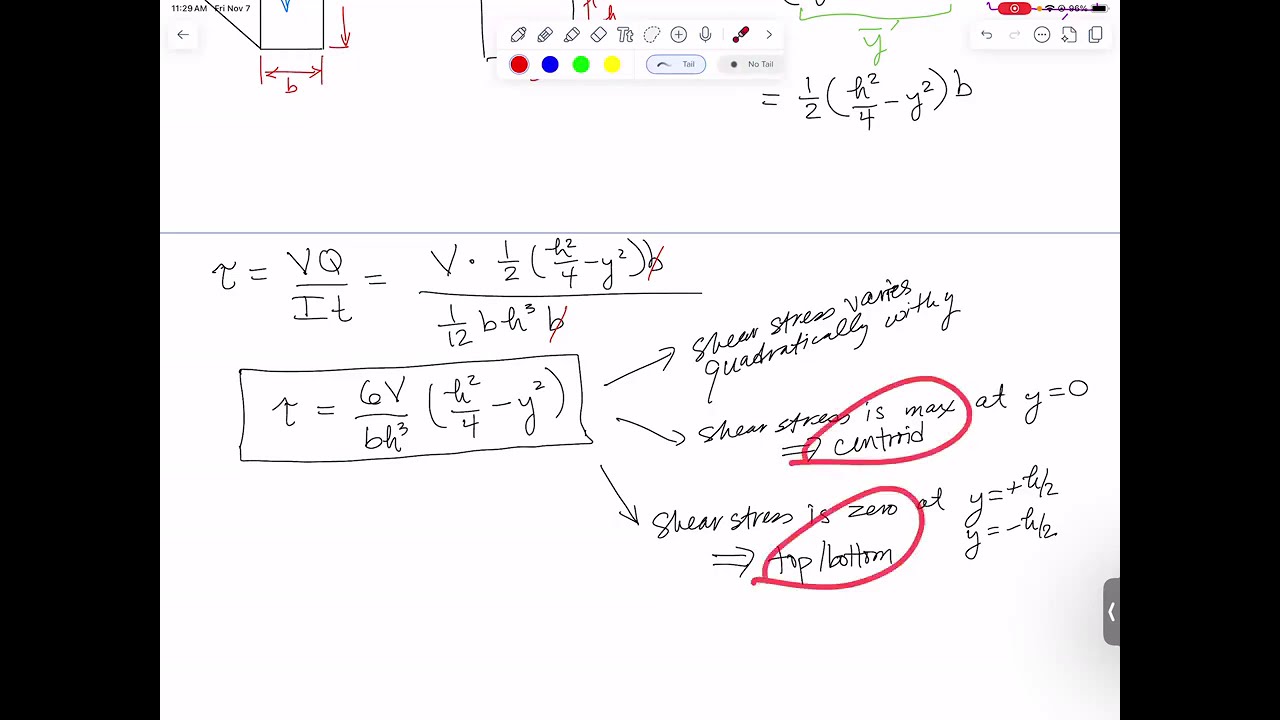 11:29 AM Fri Nov 7
96%
V
b
h
Tt
Tail
No Tail
y̅
= 1/2 (h²/4 - y²) b
τ = VQ/It = V · 1/2 (h²/4 - y²) b / 1/12 b h³ b
shear stress varies
quadratically with y
τ = 6V/bh³ (h²/4 - y²)
shear stress is max at y = 0
⇒ centroid
shear stress is zero at y = +h/2
y = -h/2
⇒ top/bottom